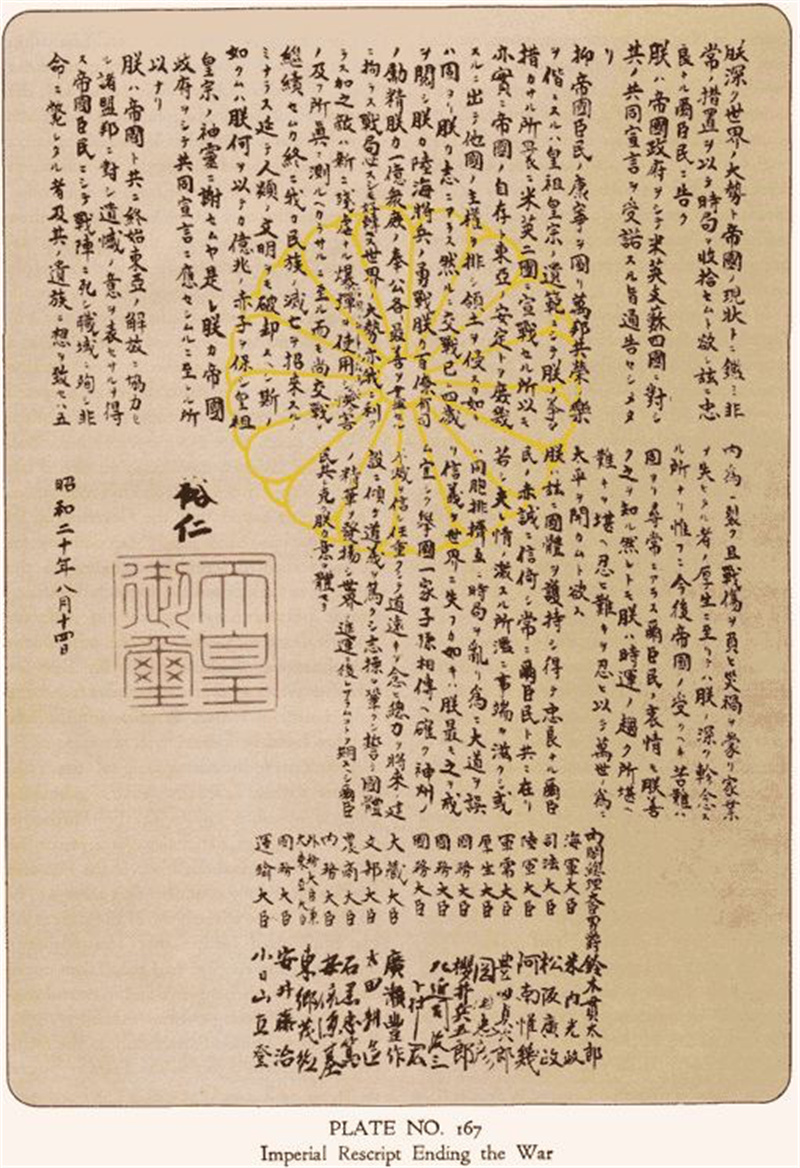 朕深ク世界ノ大勢ト帝國ノ現狀トニ鑑ミ非
常ノ措置ヲ以テ時局ヲ收拾セムト欲シ茲ニ忠
良ナル爾臣民ニ告ク
朕ハ帝國政府ヲシテ米英支蘇四國ニ對シ
其ノ共同宣言ヲ受諾スル旨通告セシメタ
リ
抑帝國臣民ノ康寧ヲ圖リ萬邦共榮ノ樂
ヲ偕ニスルハ皇祖皇宗ノ遺範ニシテ朕ノ拳々
措カサル所曩ニ米英二國ニ宣戰セル所以モ
亦實ニ帝國ノ自存ト東亞ノ安定トヲ庶幾
スルニ出テ他國ノ主權ヲ排シ領土ヲ侵スカ如キ
ハ固ヨリ朕カ志ニアラス然ルニ交戰已ニ四歲
ヲ閱シ朕カ陸海將兵ノ勇戰朕カ百僚有司
ノ勵精朕カ一億衆庶ノ奉公各最善ヲ盡セル
ニ拘ラス戰局必スシモ好轉セス世界ノ大勢亦我ニ利ア
ラス加之敵ハ新ニ殘虐ナル爆彈ヲ使用シ慘害
ノ及フ所眞ニ測ルヘカラサルニ至ル而モ尚交戰ヲ
繼續セムカ終ニ我カ民族ノ滅亡ヲ招來スルノ
ミナラス延テ人類ノ文明ヲモ破却スヘシ斯ノ
如クムハ朕何ヲ以テカ億兆ノ赤子ヲ保シ皇祖
皇宗ノ神靈ニ謝セムヤ是レ朕カ帝國
政府ヲシテ共同宣言ニ應セシムルニ至レル所
以ナリ
朕ハ帝國ト共ニ終始東亞ノ解放ニ協力セ
ル諸盟邦ニ對シ遺憾ノ意ヲ表セサルヲ得
ス帝國臣民ニシテ戰陣ニ死シ職域ニ殉シ非
命ニ斃レタル者及其ノ遺族ニ想ヲ致セハ五
內爲ニ裂ク且戰傷ヲ負ヒ災禍ヲ蒙リ家業
ヲ失ヒタル者ノ厚生ニ至リテハ朕ノ深ク軫念ス
ル所ナリ惟フニ今後帝國ノ受クヘキ苦難ハ
固ヨリ尋常ニアラス爾臣民ノ衷情モ朕善
ク之ヲ知ル然レトモ朕ハ時運ノ趨ク所堪ヘ
難キヲ堪ヘ忍ヒ難キヲ忍ヒ以テ萬世ノ爲ニ
太平ヲ開カムト欲ス
朕ハ茲ニ國體ヲ護持シ得テ忠良ナル爾臣
民ノ赤誠ニ信倚シ常ニ爾臣民ト共ニ在リ
若シ夫レ情ノ激スル所濫ニ事端ヲ滋クシ或
ハ同胞排擠互ニ時局ヲ亂リ爲ニ大道ヲ誤
リ信義ヲ世界ニ失フカ如キハ朕最モ之ヲ戒
ム宜シク擧國一家子孫相傳ヘ確ク神州ノ
不滅ヲ信シ任重クシテ道遠キヲ念ヒ總力ヲ將來ノ建
設ニ傾ケ道義ヲ篤クシ志操ヲ鞏クシ誓テ國體
ノ精華ヲ發揚シ世界ノ進運ニ後レサラムコトヲ期スヘシ爾臣
民其レ克ク朕カ意ヲ體セヨ
裕仁
天皇
御璽
昭和二十年八月十四日
內閣總理大臣男爵 鈴木貫太郎
海軍大臣 米內光政
司法大臣 松阪廣政
陸軍大臣 阿南惟幾
軍需大臣 豊田貞次郎
厚生大臣 岡田忠彥
國務大臣 櫻井兵五郎
國務大臣 左近司政三
國務大臣 下村宏
大藏大臣 廣瀨豊作
文部大臣 太田耕造
農商大臣 石黑忠篤
內務大臣 安倍源基
外務大臣兼大東亞大臣 東鄕茂德
國務大臣 安井藤治
運輸大臣 小日山直登
PLATE NO. 167
Imperial Rescript Ending the War